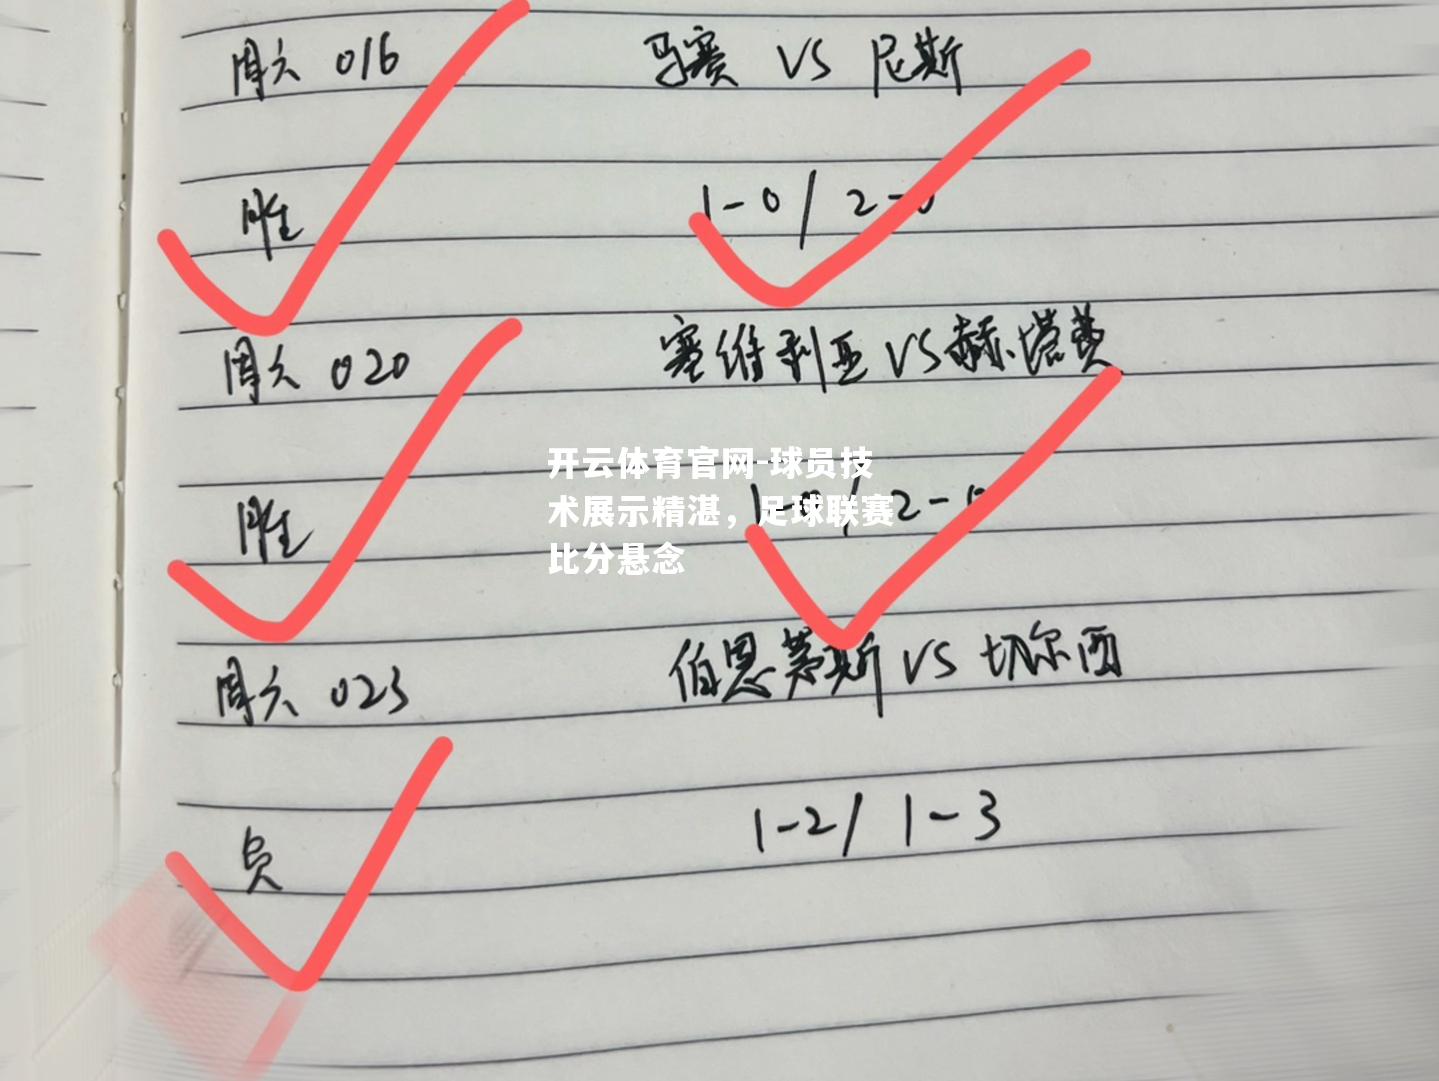 周六 016 马赛 VS 尼斯
胜 1-0 / 2-0
周六 020 塞维利亚 VS 赫塔费
胜 1-0 / 2-0
开云体育官网-球员技
术展示精湛，足球联赛
比分悬念
周六 023 伯恩茅斯 VS 切尔西
负 1-2 / 1-3